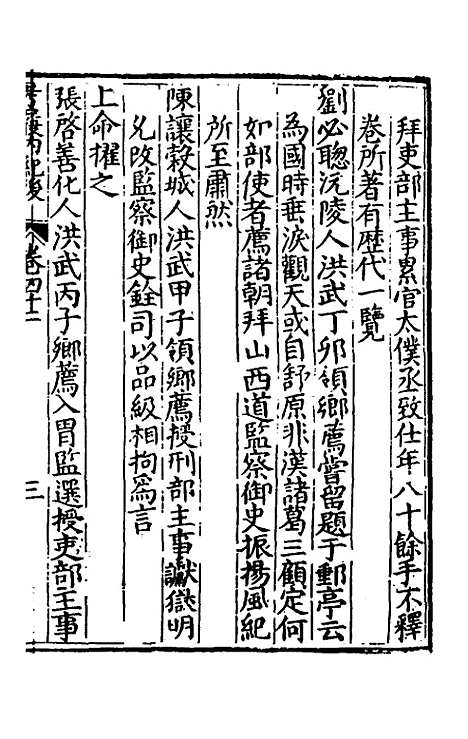 拜吏部主事累官太僕丞致仕年八十餘手不釋
卷所著有歷代一覽
劉必聰沅陵人洪武丁卯領鄉薦嘗留題于郵亭云
為國時垂淚觀天或自舒原非漢諸葛三顧定何
如部使者薦諸朝拜山西道監察御史振揚風紀
所至肅然
陳讓榖城人洪武甲子領鄉薦授刑部主事讞獄明
允改監察御史銓司以品級相拘爲言
上命擢之
張啓善化人洪武丙子鄉薦入胄監選授吏部主事
卷四十二
三